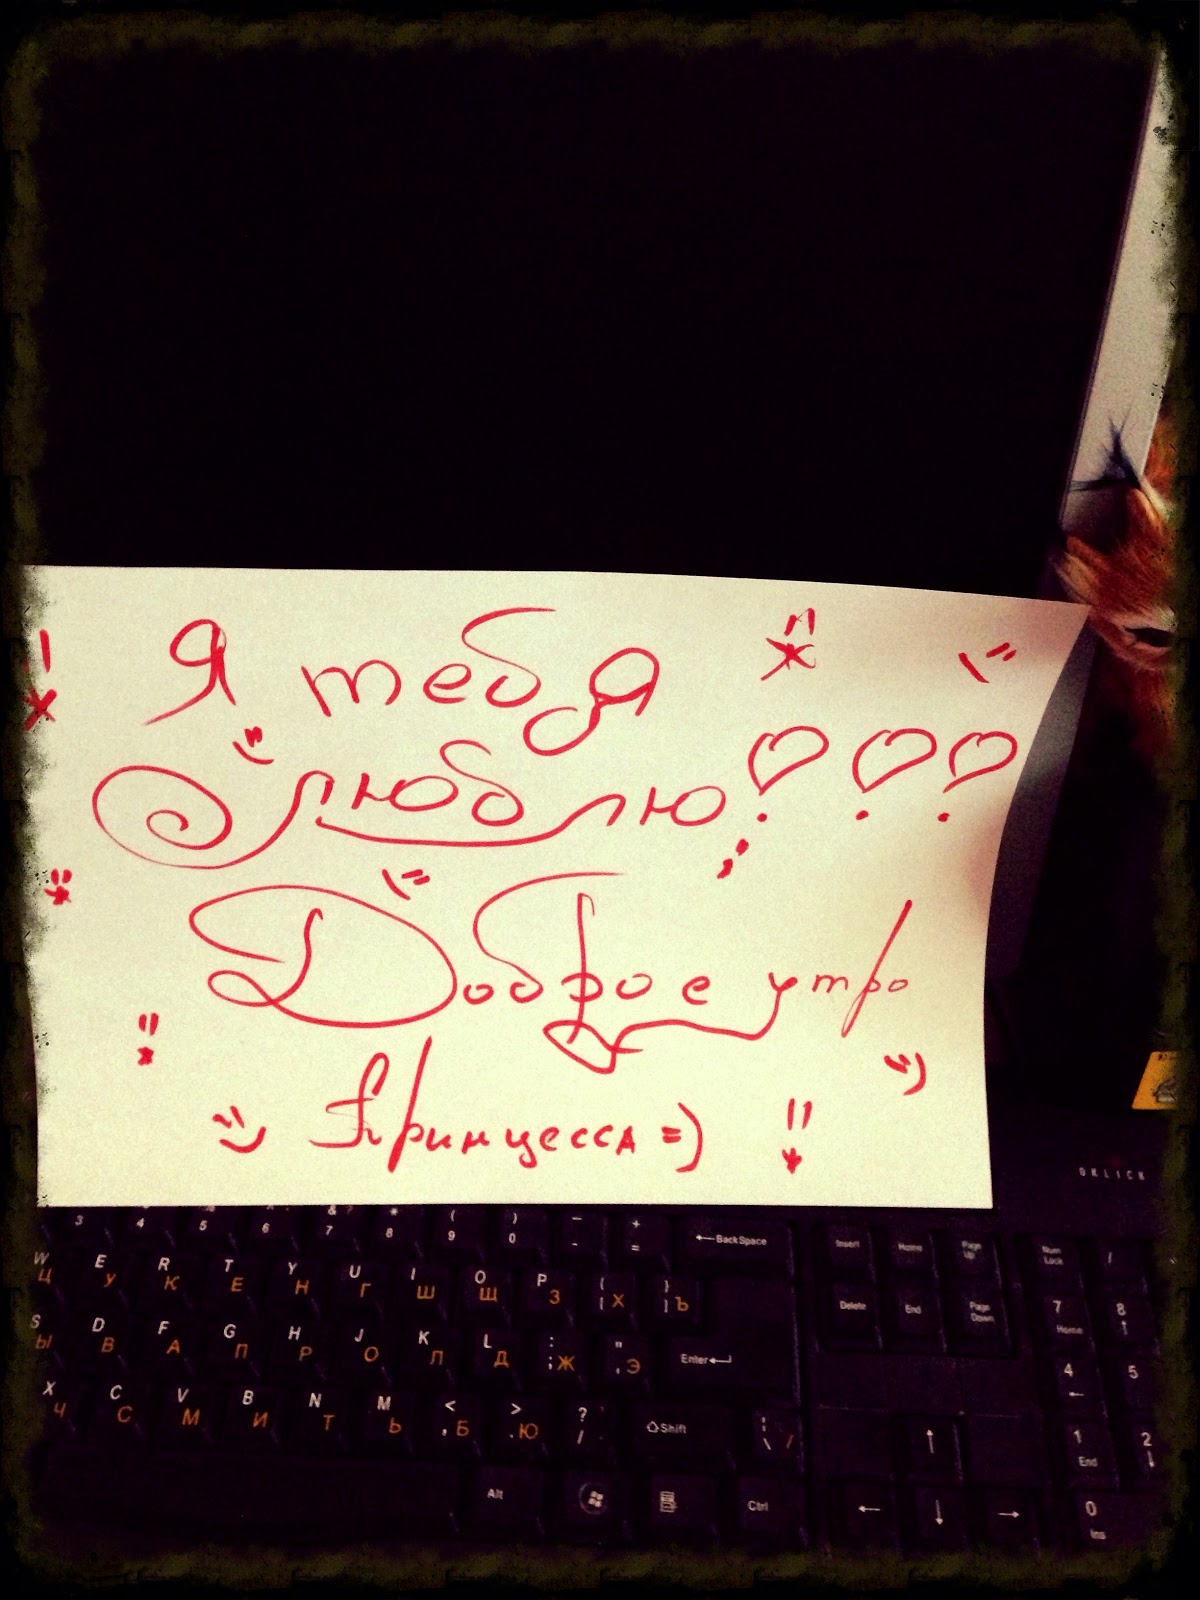 Я тебя
люблю
Доброе утро
Принцесса =)
OKLICK
3 4 5 6 & 7 * 8 ( 9 ) 0 _ - + = ←BackSpace Insert Home Page Up Num Lock /
W Ц E У R К T Е Y Н U Г I Ш O Щ P З { [ Х } ] Ъ Delete End Page Down 7 Home 8 ↑
S Ы D В F А G П H Р J О K Л L Д : ; Ж " Э Enter 4 ← 5
X Ч C С V М B И N Т M Ь < , Б > . Ю ? / Shift \ / ↑ 1 End 2 ↓
Alt Ctrl ← ↓ → 0 Ins